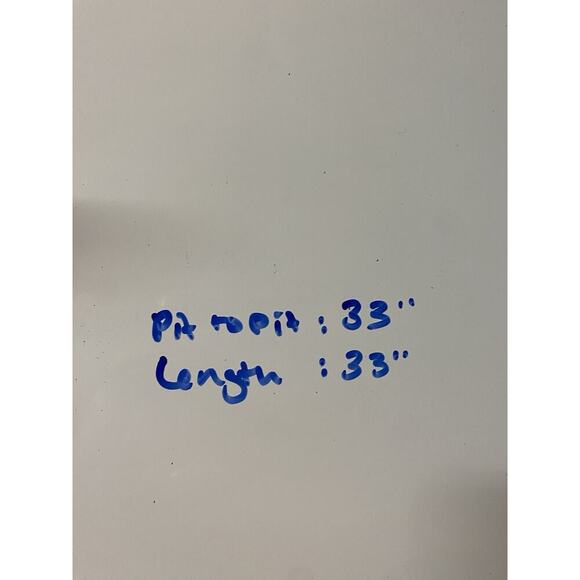 Pit to Pit : 33"
Length : 33"